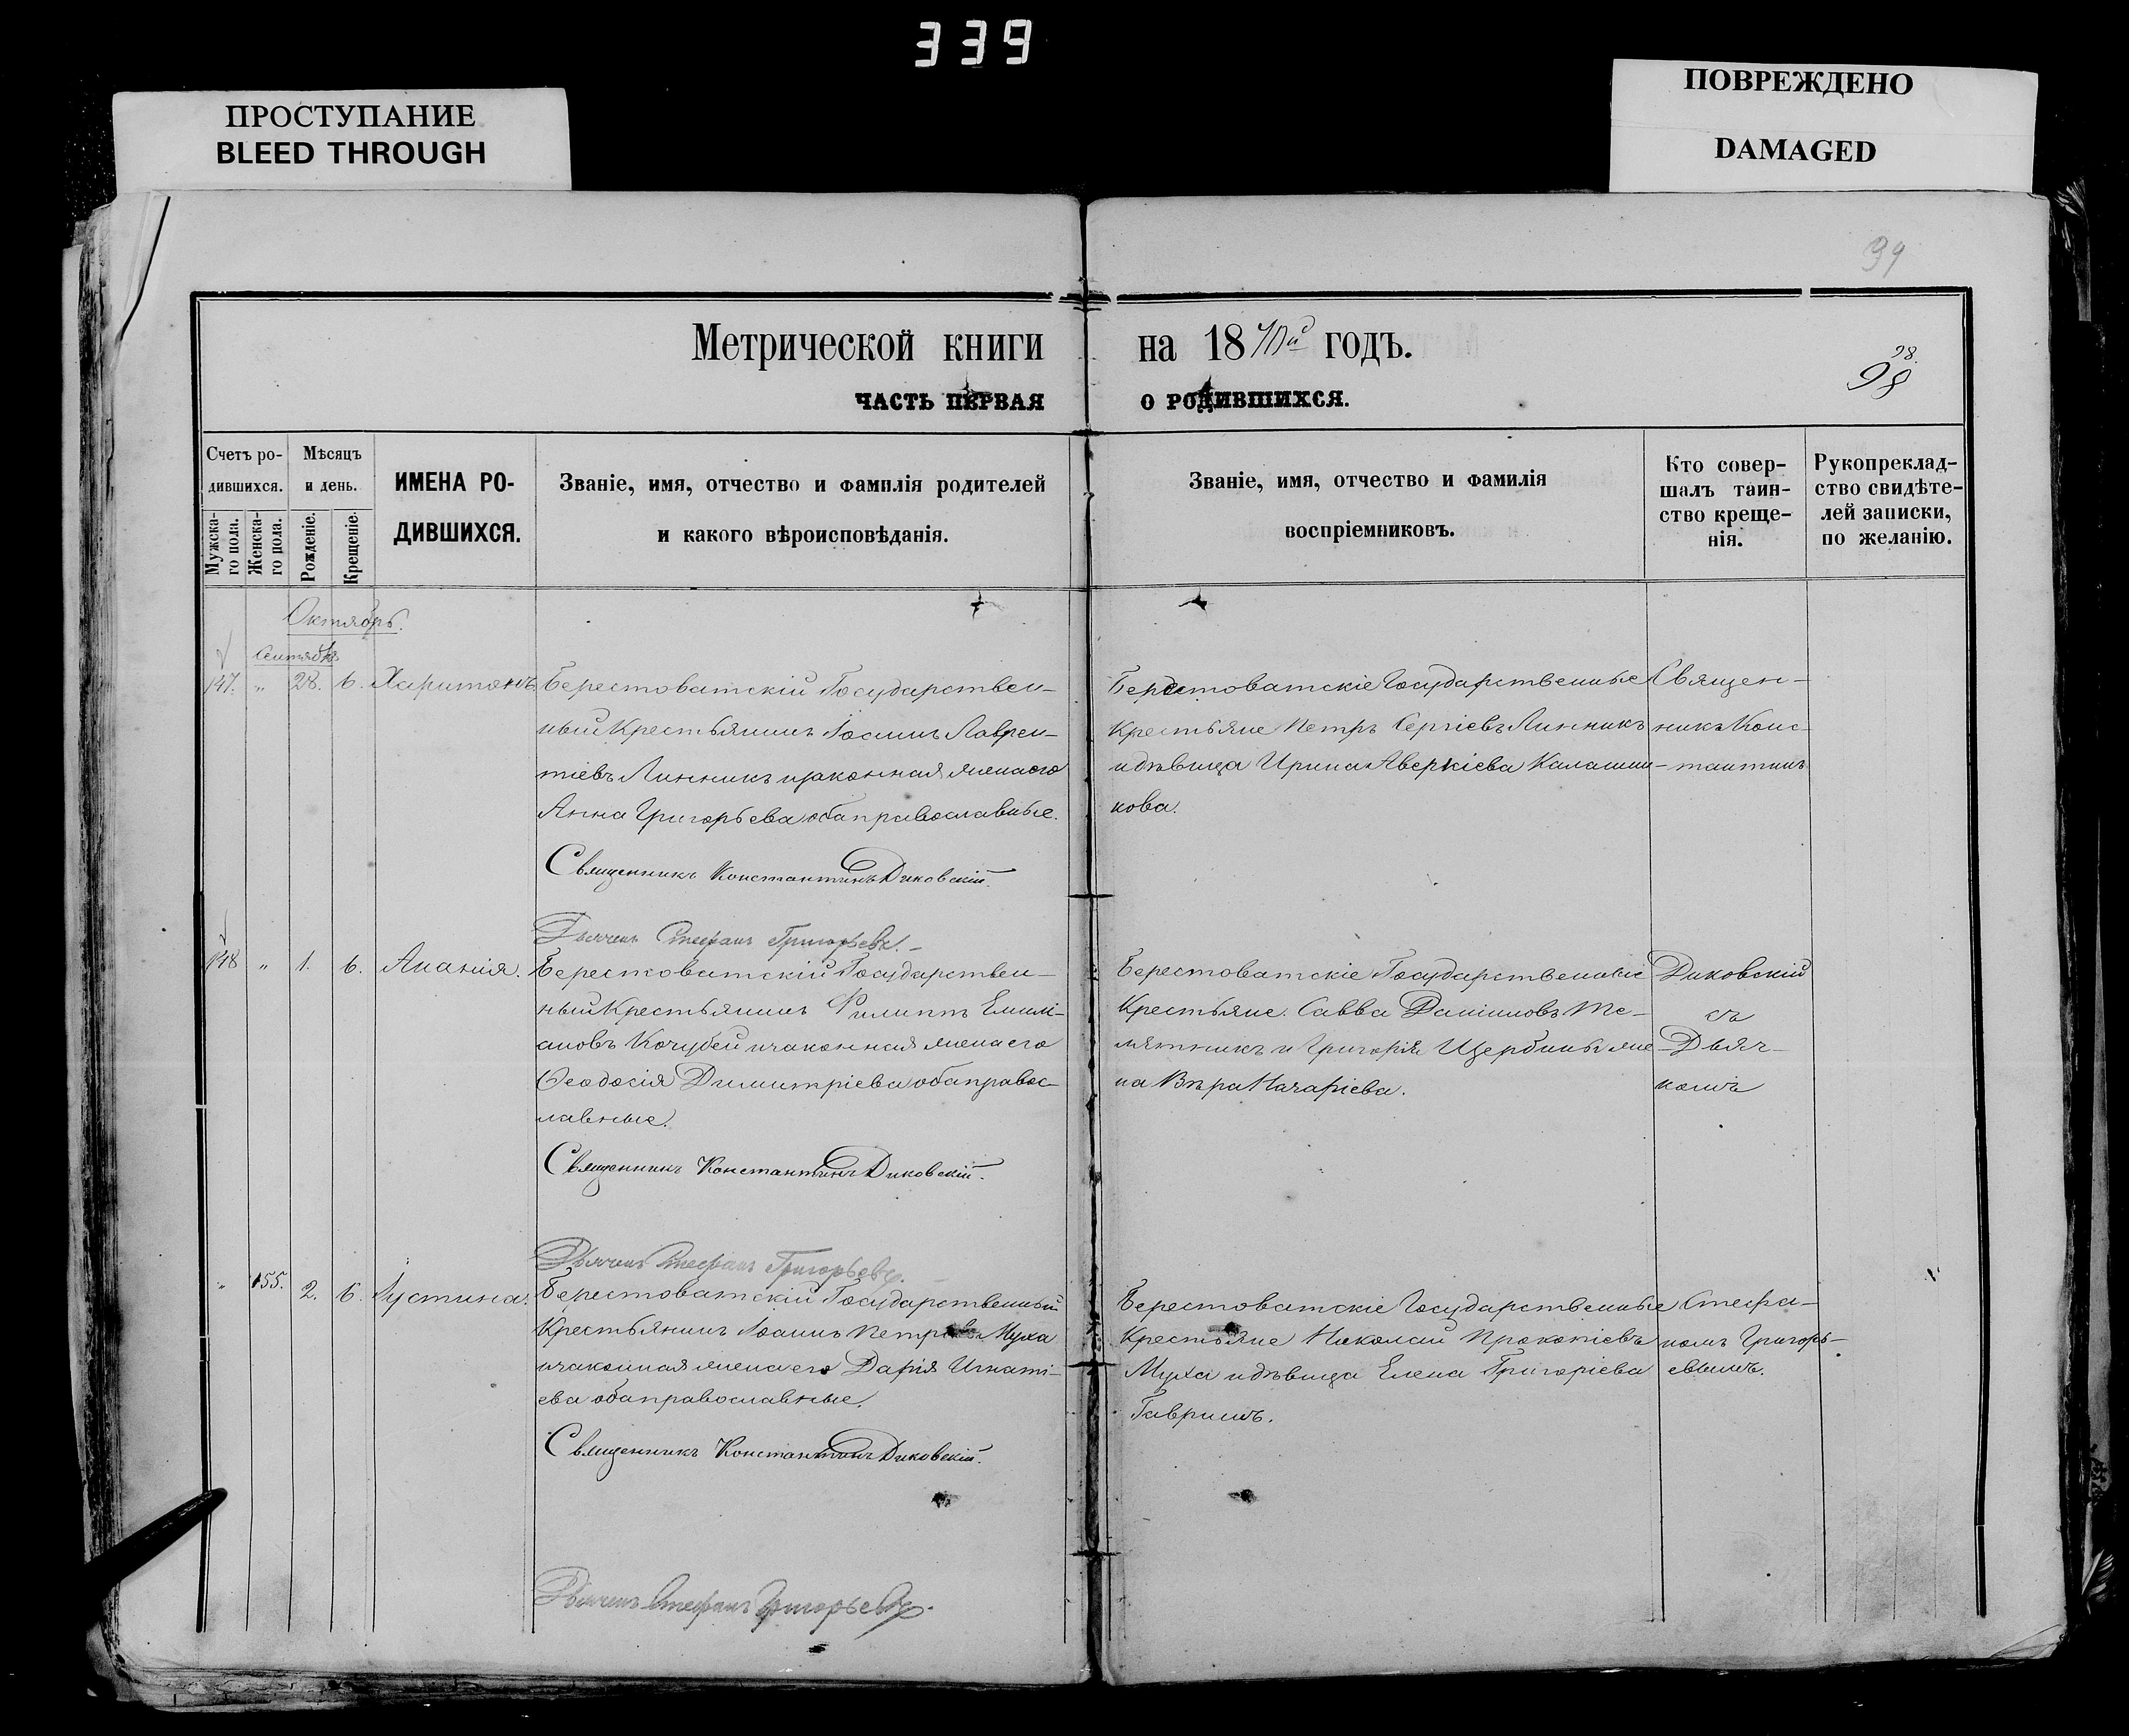 339
ПРОСТУПАНИЕ
BLEED THROUGH
ПОВРЕЖДЕНО
DAMAGED
Метрической книги на 18 годъ.
98.
98
ЧАСТЬ ПЕРВАЯ О РОДИВШИХСЯ.
Счетъ ро-
дившихся.
Мужска-
го пола.
Женска-
го пола.
Мѣсяцъ
и день.
Рожденіе.
Крещеніе.
ИМЕНА РО-
ДИВШИХСЯ.
Званіе, имя, отчество и фамилія родителей
и какого вѣроисповѣданія.
Званіе, имя, отчество и фамилія
воспріемниковъ.
Кто совер-
шалъ таин-
ство креще-
нія.
Рукопреклад-
ство свидѣте-
лей записки,
по желанію.
Октябрь.
147. " 28. 6. Харитонъ
Берестоватскій Государствен-
ный Крестьянинъ Іоаннъ Лаврен-
тіевъ Линникъ и законная жена его
Анна Григорьева оба православные.
Священникъ Константинъ Диковскій.
Дьячекъ Стефанъ Григорьевъ.
Берестоватскіе Государственные
Крестьяне Петръ Сергіевъ Линникъ
и дѣвица Ирина Аверкіева Калашни-
кова.
Священ-
никъ Конс-
тантинъ
148 " 1. 6. Ананія.
Берестоватскій Государствен-
ный Крестьянинъ Филиппъ Емилі-
ановъ Кочубей и законная жена его
Ѳеодосія Димитріева оба правос-
лавные.
Священникъ Константинъ Диковскій.
Дьячекъ Стефанъ Григорьевъ.
Берестоватскіе Государственные
Крестьяне Савва Даніиловъ Те-
лятникъ и Григорія Щербины же-
на Вѣра Назаріева.
Диковскій
съ
Дьяч-
комъ
" 155. 2. 6. Іустина.
Берестоватскій Государственный
Крестьянинъ Іоаннъ Петровъ Муха
и законная жена его Дарія Игнаті-
ева оба православные.
Священникъ Константинъ Диковскій.
Дьячекъ Стефанъ Григорьевъ.
Берестоватскіе Государственные
Крестьяне Николай Прокопіевъ
Муха и дѣвица Елена Григоріева
Гавришъ.
Стефа-
номъ Григорь-
евымъ.